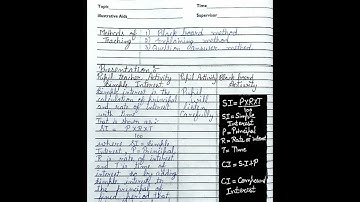 Topic
Time
Illustrative Aids
Supervisor
Methods of 1) Black board method
Teaching 2) Explaining method
3) Question answer method
Presentation :-
Pupil teacher Activity
Pupil Activity
Black board
Activity
Simple Interest
Simple interest is the
calculation of principal
and rate of interest
with time
That is shown as:
SI = P×R×T
100
where SI = Simple
Interest, P = Principal,
R is rate of interest
and T is time of
interest to by adding
simple interest to
The principal of
fixed period that
Pupil
will
listen
Carefully
SI = P×R×T
100
SI = Simple
Interest
P = Principal
R = Rate of Interest
T = Time
CI = S·I+P
CI = Compound
Interest